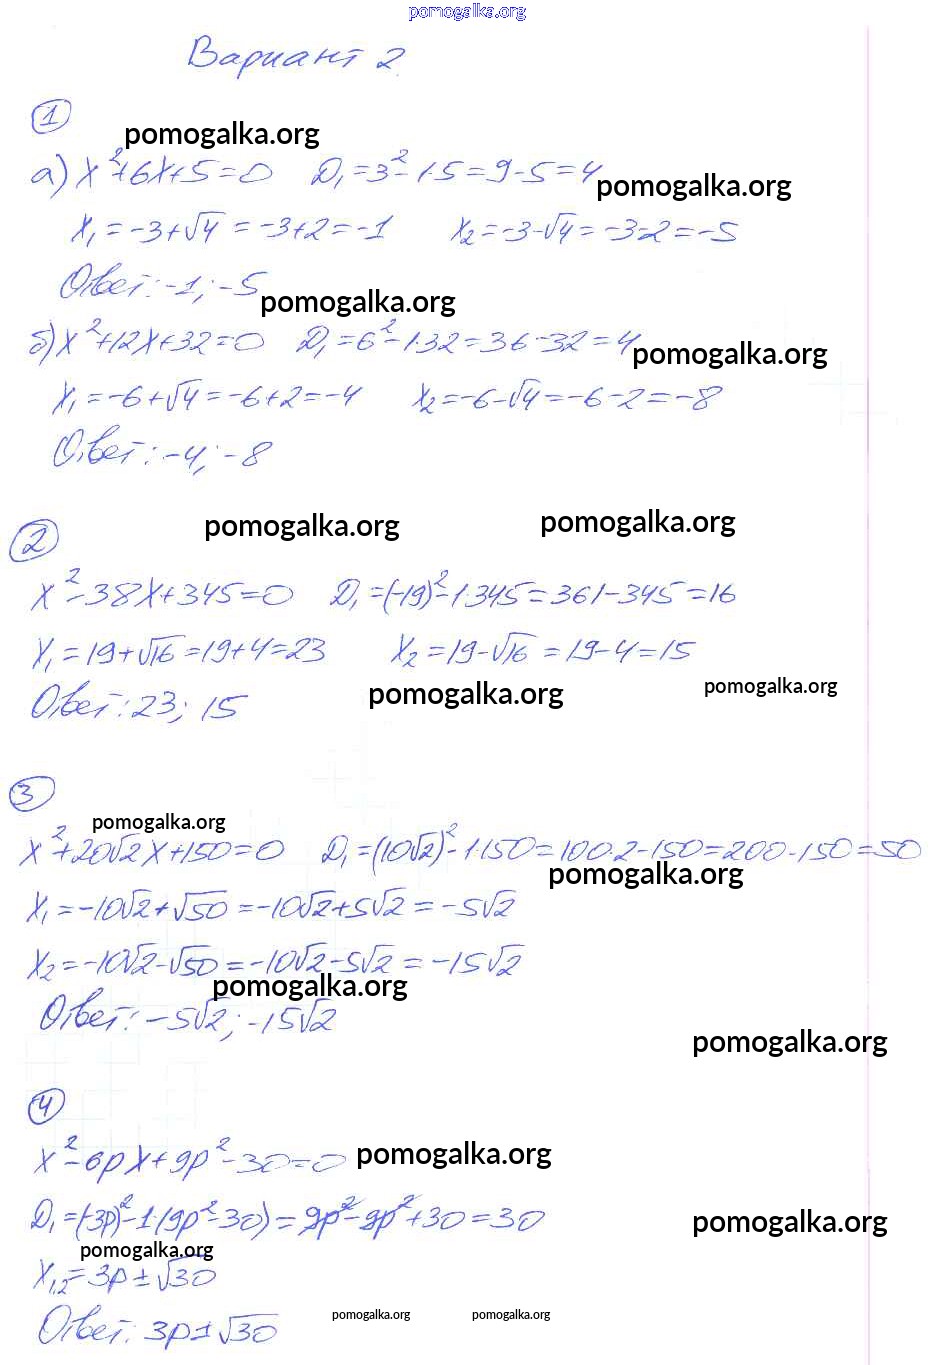 pomogalka.org
Вариант 2
1
pomogalka.org
а) x²+6x+5=0 D₁=3²-1·5=9-5=4
pomogalka.org
x₁=-3+√4=-3+2=-1 x₂=-3-√4=-3-2=-5
Ответ: -1; -5
pomogalka.org
б) x²+12x+32=0 D₁=6²-1·32=36-32=4
pomogalka.org
x₁=-6+√4=-6+2=-4 x₂=-6-√4=-6-2=-8
Ответ: -4; -8
2
pomogalka.org pomogalka.org
x²-38x+345=0 D₁=(-19)²-1·345=361-345=16
x₁=19+√16=19+4=23 x₂=19-√16=19-4=15
Ответ: 23; 15
pomogalka.org pomogalka.org
3
pomogalka.org
x²+20√2x+150=0 D₁=(10√2)²-1·150=100·2-150=200-150=50
pomogalka.org
x₁=-10√2+√50=-10√2+5√2=-5√2
x₂=-10√2-√50=-10√2-5√2=-15√2
pomogalka.org
Ответ: -5√2; -15√2
pomogalka.org
4
x²-6px+9p²-30=0
pomogalka.org
D₁=(-3p)²-1·(9p²-30)=9p²-9p²+30=30
pomogalka.org
pomogalka.org
x₁,₂=3p±√30
Ответ: 3p±√30
pomogalka.org pomogalka.org